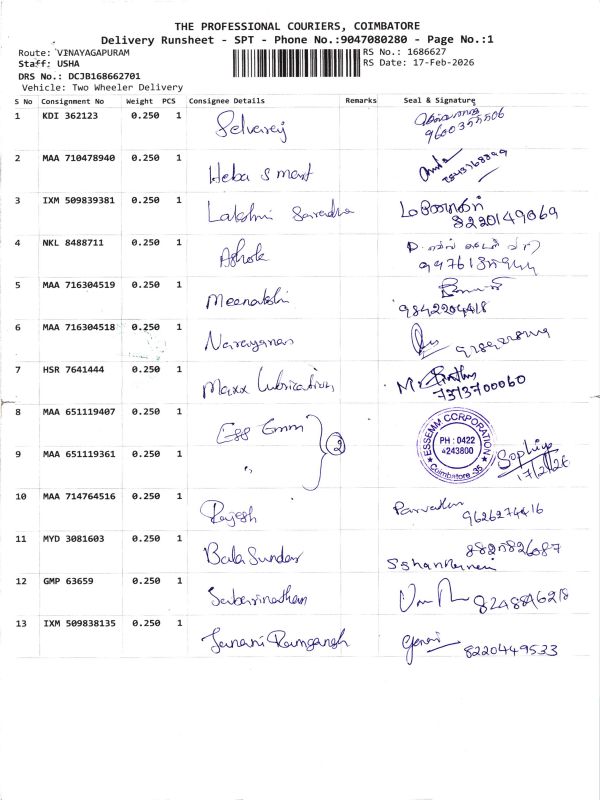 THE PROFESSIONAL COURIERS, COIMBATORE
Delivery Runsheet - SPT - Phone No.:9047080280 - Page No.:1
Route: VINAYAGAPURAM
RS No.: 1686627
Staff: USHA
RS Date: 17-Feb-2026
DRS No.: DCJB168662701
Vehicle: Two Wheeler Delivery
S No Consignment No Weight PCS Consignee Details Remarks Seal & Signature
1 KDI 362123 0.250 1 Selvaraj 9600355506
2 MAA 710478940 0.250 1 Heba Smart
3 IXM 509839381 0.250 1 Lakshmi Saradha 8220149069
4 NKL 8488711 0.250 1 Ashok
5 MAA 716304519 0.250 1 Meenakshi 9842204418
6 MAA 716304518 0.250 1 Narayanan
7 HSR 7641444 0.250 1 Maxx Lubrication 7373700060
8 MAA 651119407 0.250 1 Ess Emm 2
ESSEMM CORPORATION
PH : 0422
4243800
Coimbatore-35
Sophiya
17/2/26
9 MAA 651119361 0.250 1 "
10 MAA 714764516 0.250 1 Rajesh 9626274416
11 MYD 3081603 0.250 1 Bala Sundar
12 GMP 63659 0.250 1 Sabarinathan 8248846218
13 IXM 509838135 0.250 1 Janani 8220449533